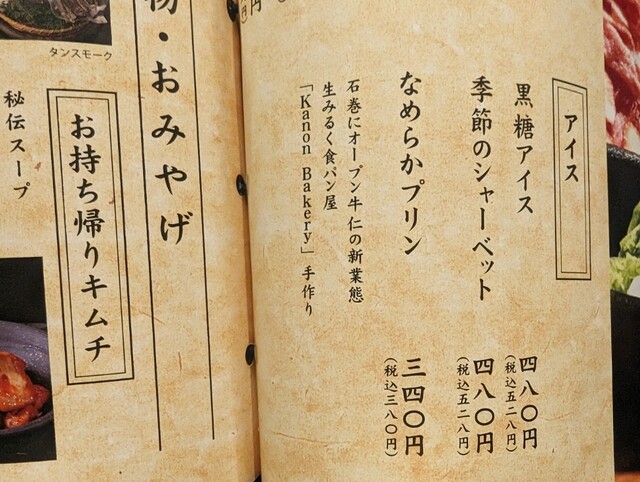 アイス
黒糖アイス
四八〇円
(税込五二八円)
季節のシャーベット
四八〇円
(税込五二八円)
なめらかプリン
三四〇円
(税込三八〇円)
石巻にオープン牛仁の新業態
生みるく食パン屋
「Kanon Bakery」手作り
円
物・おみやげ
お持ち帰りキムチ
タンスモーク
秘伝スープ